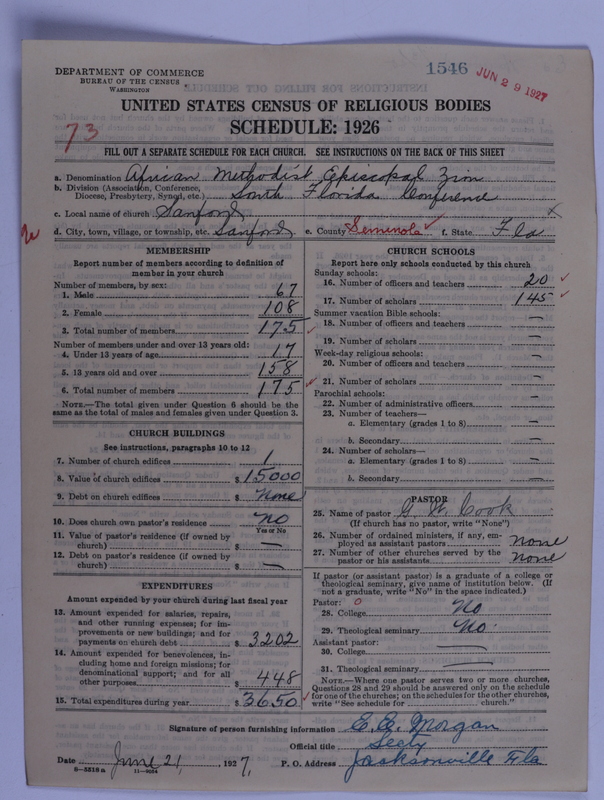 1546 JUN 29 1927
DEPARTMENT OF COMMERCE
BUREAU OF THE CENSUS
WASHINGTON
UNITED STATES CENSUS OF RELIGIOUS BODIES
73
SCHEDULE: 1926
FILL OUT A SEPARATE SCHEDULE FOR EACH CHURCH. SEE INSTRUCTIONS ON THE BACK OF THIS SHEET
a. Denomination African Methodist Episcopal Zion
b. Division (Association, Conference, Diocese, Presbytery, Synod, etc.) South Florida Conference
c. Local name of church Sanford
d. City, town, village, or township, etc. Sanford e. County Seminola f. State Fla
MEMBERSHIP
Report number of members according to definition of
member in your church
Number of members, by sex:
1. Male 67
2. Female 108
3. Total number of members 175
Number of members under and over 13 years old:
4. Under 13 years of age 17
5. 13 years old and over 158
6. Total number of members 175
NOTE.—The total given under Question 6 should be the
same as the total of males and females given under Question 3.
CHURCH BUILDINGS
See instructions, paragraphs 10 to 12
7. Number of church edifices 1
8. Value of church edifices $ 15000
9. Debt on church edifices $ None
10. Does church own pastor's residence No
Yes or No
11. Value of pastor's residence (if owned by
church) $ —
12. Debt on pastor's residence (if owned by
church) $ —
EXPENDITURES
Amount expended by your church during last fiscal year
13. Amount expended for salaries, repairs,
and other running expenses; for im-
provements or new buildings; and for
payments on church debt $ 3202
14. Amount expended for benevolences, in-
cluding home and foreign missions; for
denominational support; and for all
other purposes $ 448
15. Total expenditures during year $ 3650
CHURCH SCHOOLS
Report here only schools conducted by this church
Sunday schools:
16. Number of officers and teachers 20
17. Number of scholars 145
Summer vacation Bible schools:
18. Number of officers and teachers —
19. Number of scholars —
Week-day religious schools:
20. Number of officers and teachers —
21. Number of scholars —
Parochial schools:
22. Number of administrative officers —
23. Number of teachers—
a. Elementary (grades 1 to 8) —
b. Secondary —
24. Number of scholars—
a. Elementary (grades 1 to 8) —
b. Secondary —
PASTOR
25. Name of pastor G. W. Cook
(If church has no pastor, write "None")
26. Number of ordained ministers, if any, em-
ployed as assistant pastors None
27. Number of other churches served by the
pastor or his assistants None
If pastor (or assistant pastor) is a graduate of a college or
theological seminary, give name of institution below. (If
not a graduate, write "No" in the space indicated.)
Pastor: 0
28. College No
29. Theological seminary No.
Assistant pastor:
30. College —
31. Theological seminary —
NOTE.—Where one pastor serves two or more churches,
Questions 28 and 29 should be answered only on the schedule
for one of the churches; on the schedules for the other churches,
write "See schedule for church."
Signature of person furnishing information E. E. Morgan
Official title Secty
Date June 21, 1927, P. O. Address Jacksonville Fla
8—5518 a 11—9034